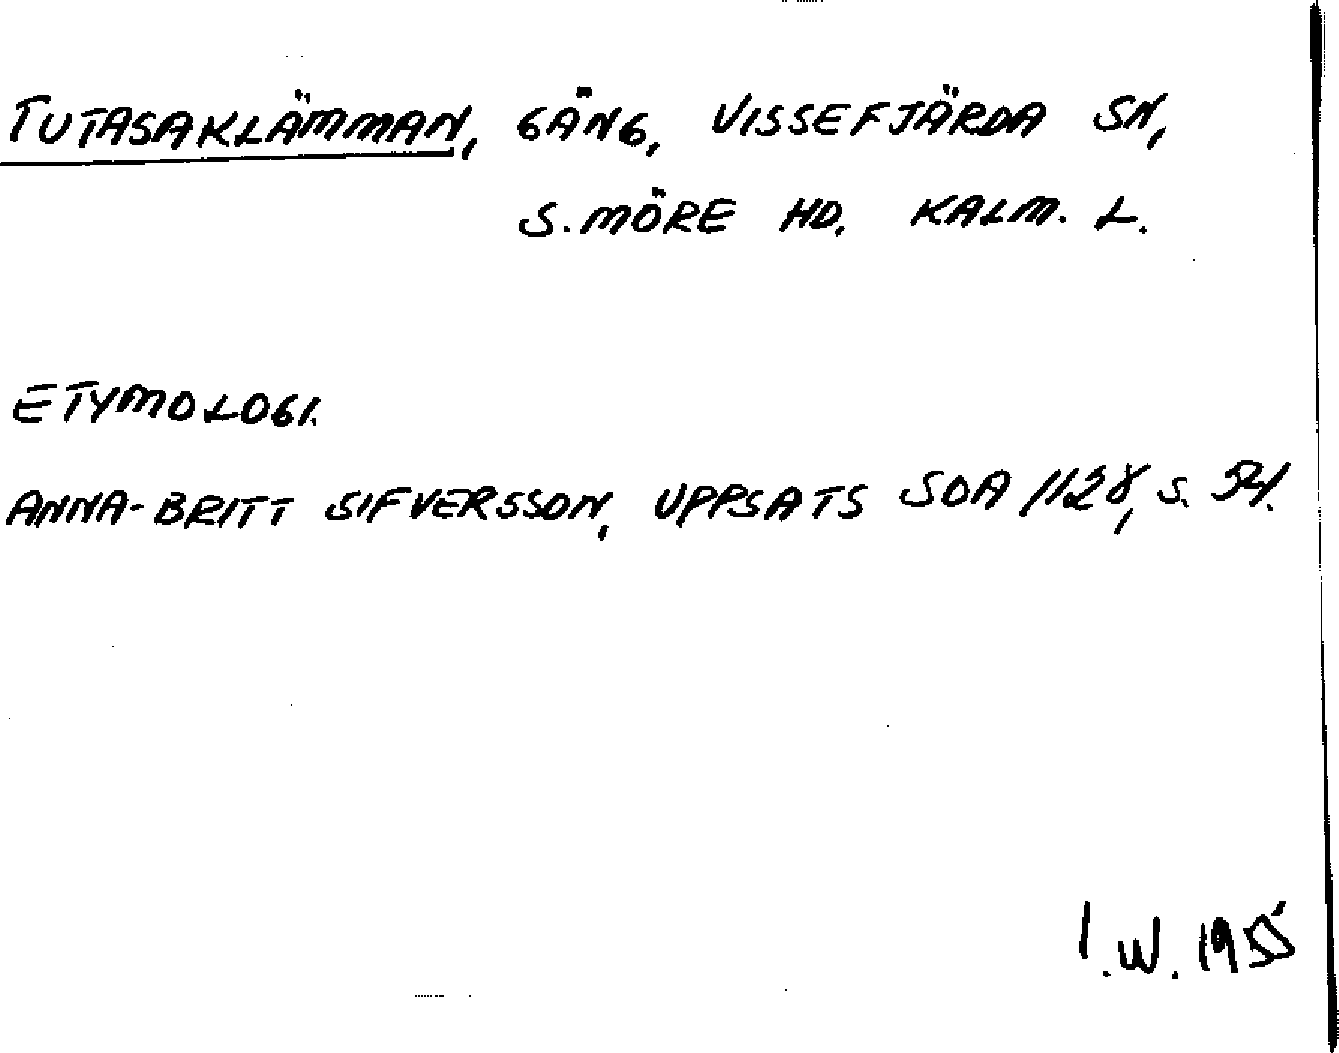 TUTASAKLÄMMAN, GÄNG, VISSEFJÄRDA SN,
S. MÖRE HD. KALM. L.
ETYMOLOGI.
ANNA-BRITT SIFVERSSON, UPPSATS SOA 1128, s. 54.
I.W. 1955